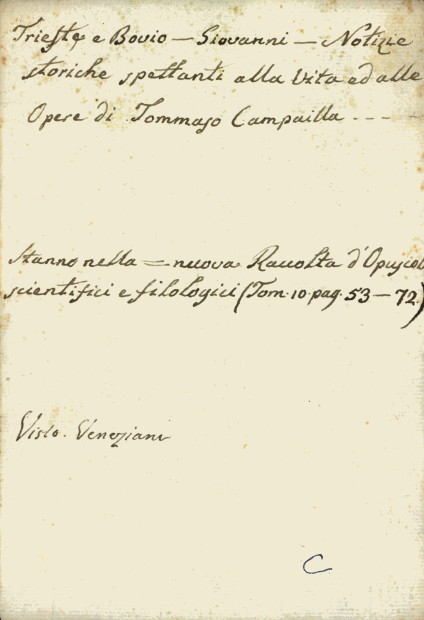 Trieste e Bovio — Giovanni — Notizie
storiche spettanti alla Vita ed alle
Opere di Tommaso Campailla - - - -
Stanno nella = nuova Raccolta d'Opuscol
scientifici e filologici (Tom. 10. pag. 53 — 72.)
Visto. Veneziani
C